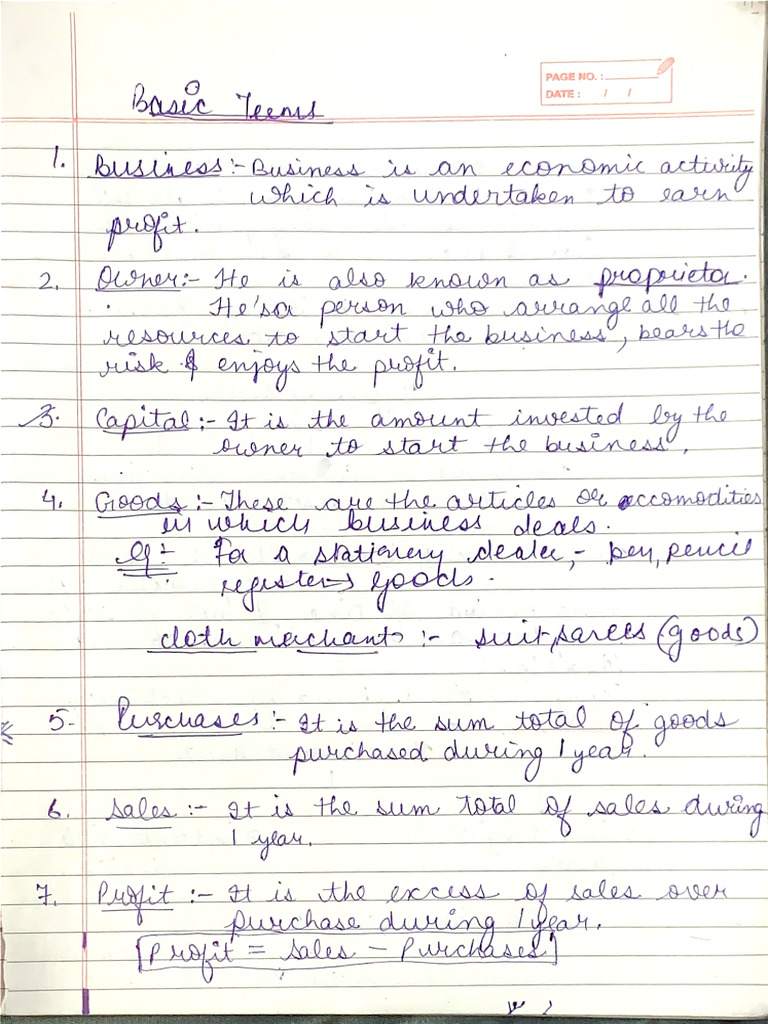 PAGE NO. :
DATE : / /
Basic Terms
1. Business :- Business is an economic activity
which is undertaken to earn
profit.
2. Owner :- He is also known as proprietor.
He's a person who arrange all the
resources to start the business, bears the
risk & enjoys the profit.
3. Capital :- It is the amount invested by the
owner to start the business.
4. Goods :- These are the articles or accomodities
in which business deals.
Eg :- For a stationery dealer, - pen, pencil
register → goods.
cloth merchant :- suit, sarees (goods)
5- Purchases :- It is the sum total of goods
purchased during 1 year.
6. Sales :- It is the sum total of sales during
1 year.
7. Profit :- It is the excess of sales over
purchase during 1 year.
Profit = Sales - Purchases